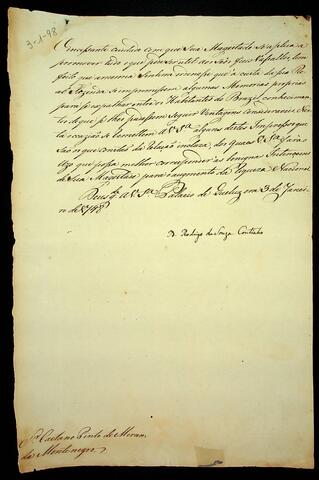 3-1-98
O incessante cuidado com que Sua Magestade se aplica a
promover tudo o que pode ser util aos Seus fieis Vassallos, tem
feito que a mesma Senhora mande que á custa da Sua Re
al Fazenda se imprimissem algumas Memorias proprias
para se espalhar entre os Habitantes do Brazil conhecimen
tos de que lhes podessem seguir Ventagens consideraveis. Nes
ta occazião se remettem a V. Sra. alguns destes Impressos que
são os que constão da Relação incluza, dos quaes V. Sra. fará o
Uzo que possa melhor corresponder ás benignas Intençoens
de Sua Magestade para o augmento da Riqueza Nacional
Deus gde. a V. Sra. Palacio de Queluz em 3 de Janei
ro de 1798
D. Rodrigo de Souza Coutinho
Sr. Caetano Pinto de Miran
da Montenegro